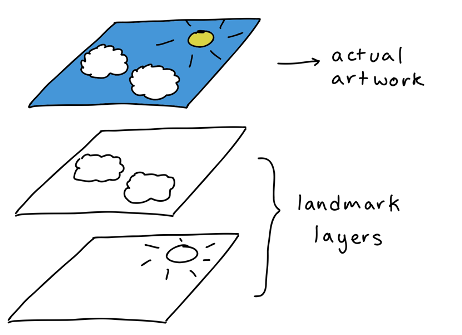 actual
artwork
landmark
layers